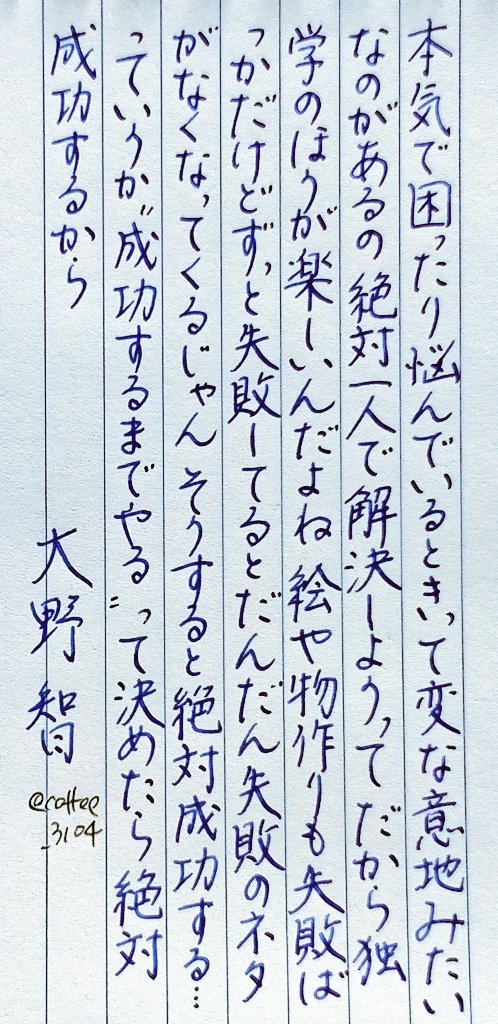 本気で困ったり悩んでいるときって変な意地みたい
なのがあるの 絶対一人で解決しようって だから独
学のほうが楽しいんだよね 絵や物作りも失敗ば
っかだけどずっと失敗してるとだんだん失敗のネタ
がなくなってくるじゃん そうすると絶対成功する…
っていうか〝成功するまでやる〟って決めたら絶対
成功するから
大野智
@coffee
_3104